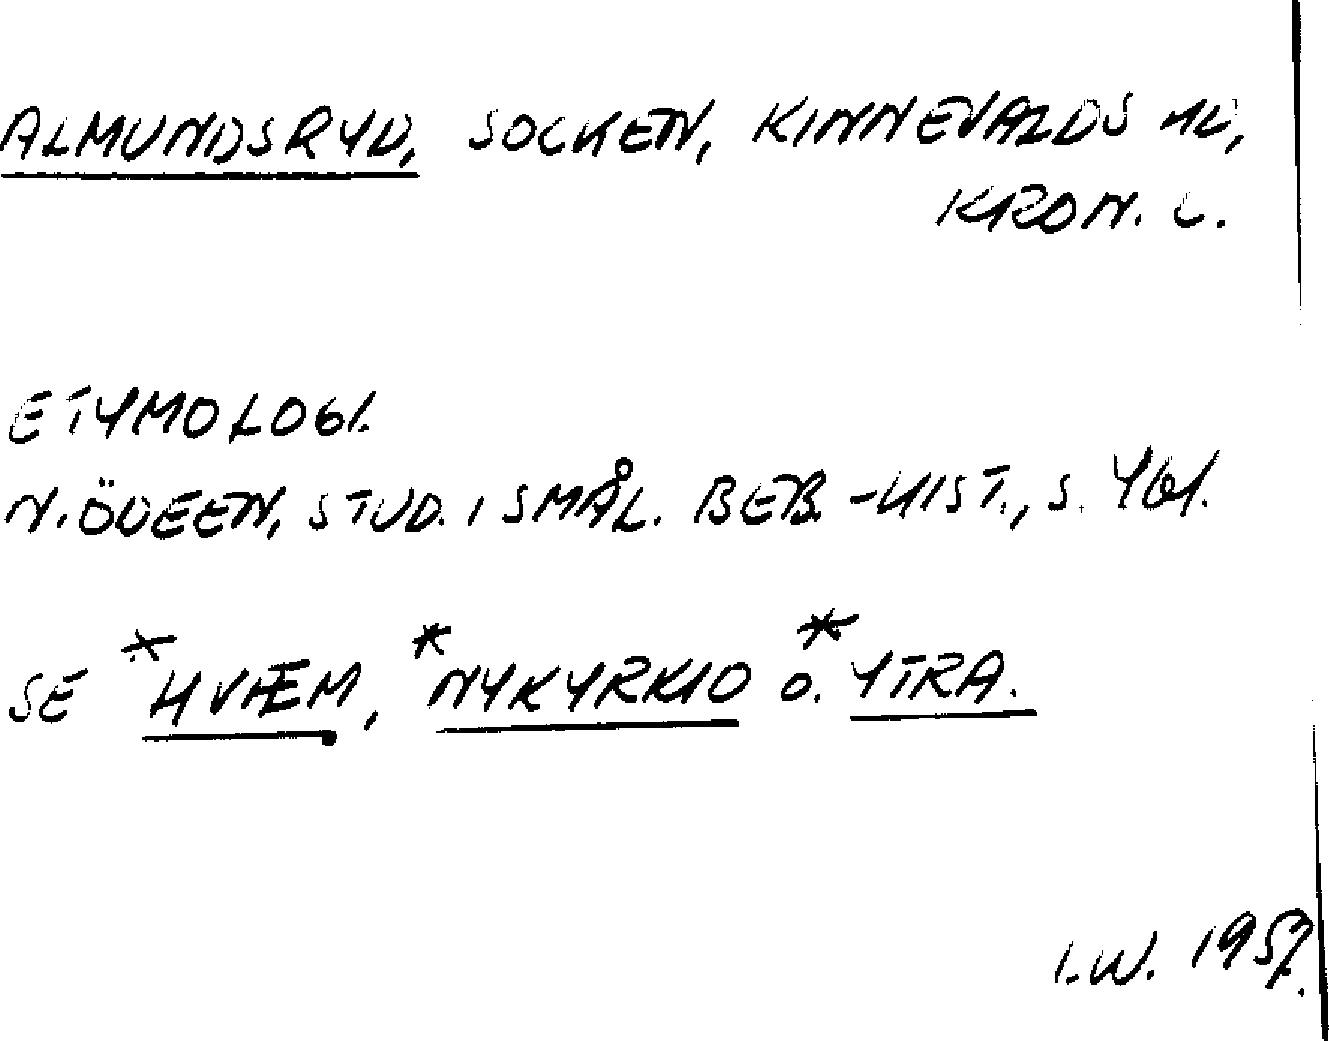 ALMUNDSRYD, SOCKEN, KINNEVALDS HD,
KRON. L.
ETYMOLOGI.
N. ÖDEEN, STUD. I SMÅL. BEB.-HIST., S. 461.
SE *HVÆM, *NYKYRKIO O. *YTRA.
I.W. 1957.